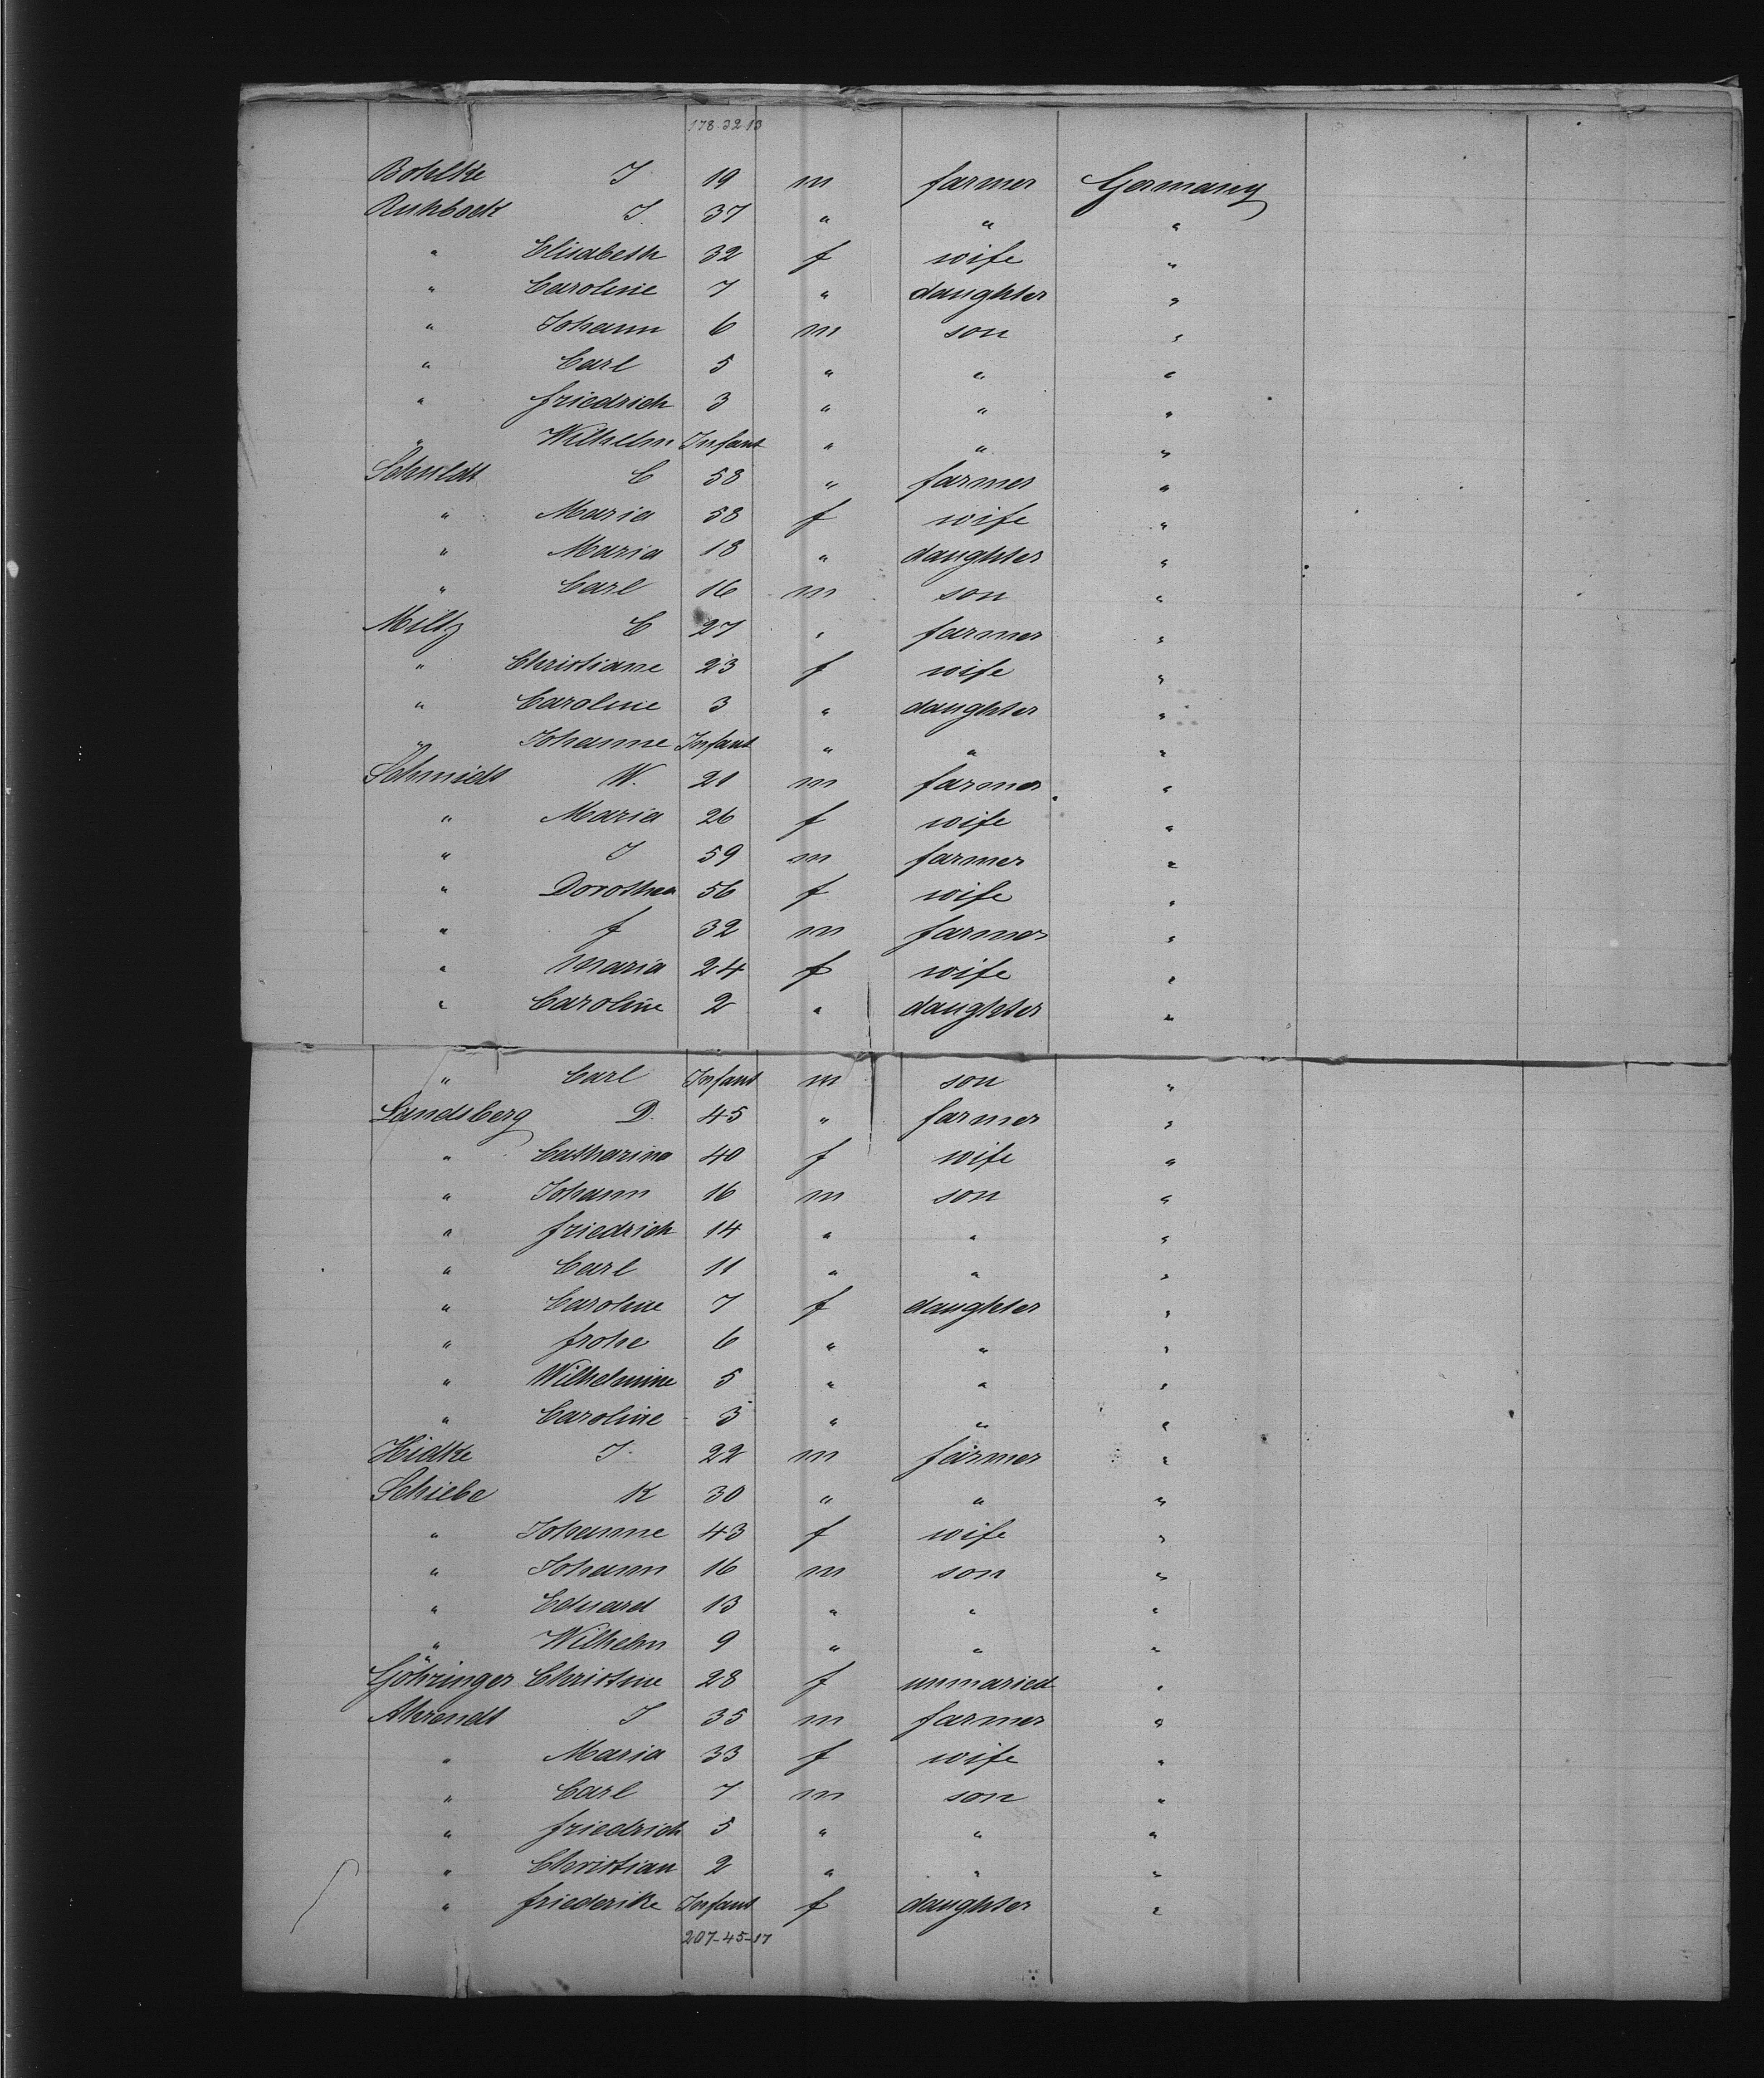 178.32.13
Bohlke J. 19 m farmer Germany
Ruhbock J. 37 " " "
" Elisabeth 32 f wife "
" Caroline 7 " daughter "
" Johann 6 m son "
" Carl 5 " " "
" friedrich 3 " " "
" Wilhelm Infant " " "
Schuldt C 58 " farmer "
" Maria 58 f wife "
" Maria 18 " daughter "
" Carl 16 m son "
Miltz C 27 " farmer "
" Christiane 23 f wife "
" Caroline 3 " daughter "
" Johanne Infant " " "
Schmidt W. 21 m farmer "
" Maria 26 f wife "
" J 59 m farmer "
" Dorothea 56 f wife "
" f 32 m farmer "
" Maria 24 f wife "
" Caroline 2 " daughter "
" Carl Infant m son "
Landsberg D. 45 " farmer "
" Catharina 40 f wife "
" Johann 16 m son "
" friedrich 14 " " "
" Carl 11 " " "
" Caroline 7 f daughter "
" frohe 6 " " "
" Wilhelmine 5 " " "
" Caroline 3 " " "
Hidke J. 22 m farmer "
Schiebe K 30 " " "
" Johanne 43 f wife "
" Johann 16 m son "
" Eduard 13 " " "
" Wilhelm 9 " " "
Göhringer Christine 28 f unmaried "
Ahrendt J 35 m farmer "
" Maria 33 f wife "
" Carl 7 m son "
" friedrich 5 " " "
" Christian 2 " " "
" friederike Infant f daughter "
207-45-17